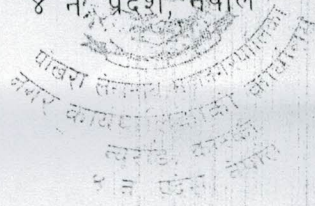 ४ नं. प्रदेश, नेपाल
पोखरा लेखनाथ महानगरपालिका
नगर कार्यपालिकाको कार्यालय
४ नं. प्रदेश, नेपाल